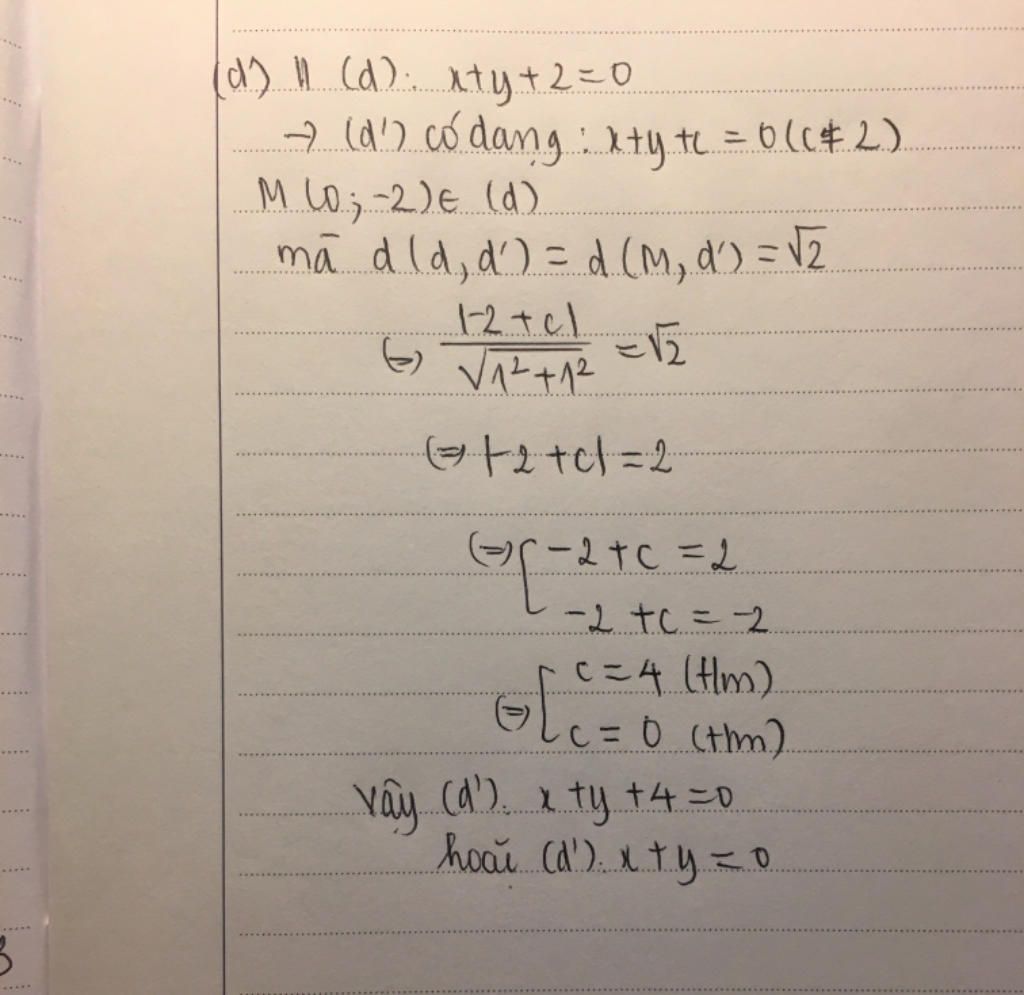 (d') // (d): x+y+2=0
→ (d') có dạng: x+y+c = 0 (c ≠ 2)
M (0; -2) ∈ (d)
mà d(d, d') = d(M, d') = √2
(=) |-2 + c| / √(1² + 1²) = √2
(=) |-2 + c| = 2
(=) [ -2 + c = 2
-2 + c = -2
(=) [ c = 4 (t/m)
c = 0 (t/m)
Vậy (d'): x + y + 4 = 0
hoặc (d'): x + y = 0
3